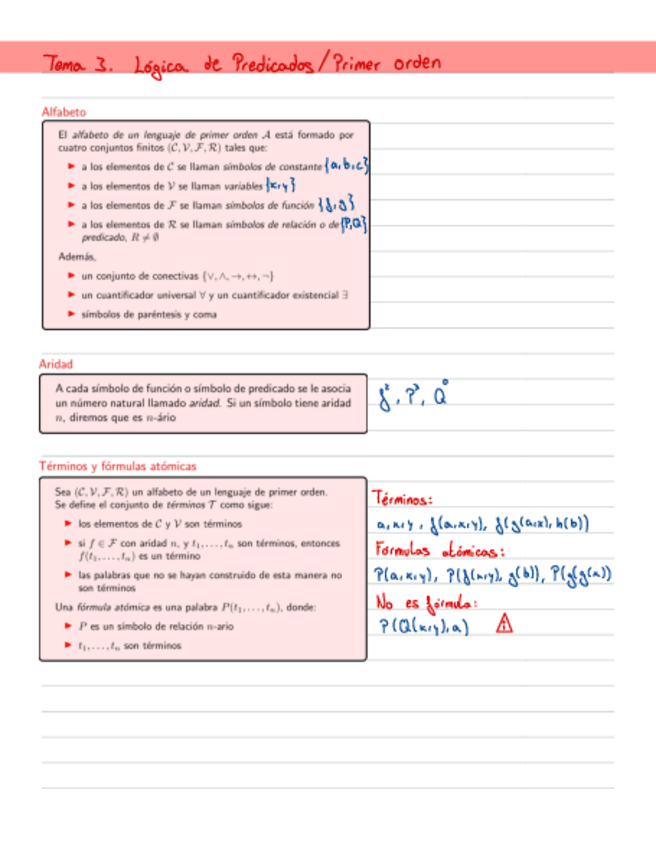 Tema 3. Lógica de Predicados/Primer orden
Alfabeto
El alfabeto de un lenguaje de primer orden A está formado por
cuatro conjuntos finitos (C, V, F, R) tales que:
► a los elementos de C se llaman símbolos de constante {a,b,c}
► a los elementos de V se llaman variables {x,y}
► a los elementos de F se llaman símbolos de función {f,g}
► a los elementos de R se llaman símbolos de relación o de {P,Q}
predicado, R ≠ ∅
Además,
► un conjunto de conectivas {∨, ∧, →, ↔, ¬}
► un cuantificador universal ∀ y un cuantificador existencial ∃
► símbolos de paréntesis y coma
Aridad
A cada símbolo de función o símbolo de predicado se le asocia
un número natural llamado aridad. Si un símbolo tiene aridad
n, diremos que es n-ário
f², P³, Q⁰
Términos y fórmulas atómicas
Sea (C, V, F, R) un alfabeto de un lenguaje de primer orden.
Se define el conjunto de términos T como sigue:
► los elementos de C y V son términos
► si f ∈ F con aridad n, y t₁, . . . , tₙ son términos, entonces
f(t₁, . . . , tₙ) es un término
► las palabras que no se hayan construido de esta manera no
son términos
Una fórmula atómica es una palabra P(t₁, . . . , tₙ), donde:
► P es un símbolo de relación n-ario
► t₁, . . . , tₙ son términos
Términos:
a, x, y, f(a,x,y), f(g(a,x), h(b))
Fórmulas atómicas:
P(a,x,y), P(f(x,y), g(b)), P(g(g(x))
No es fórmula:
P(Q(x,y), a)